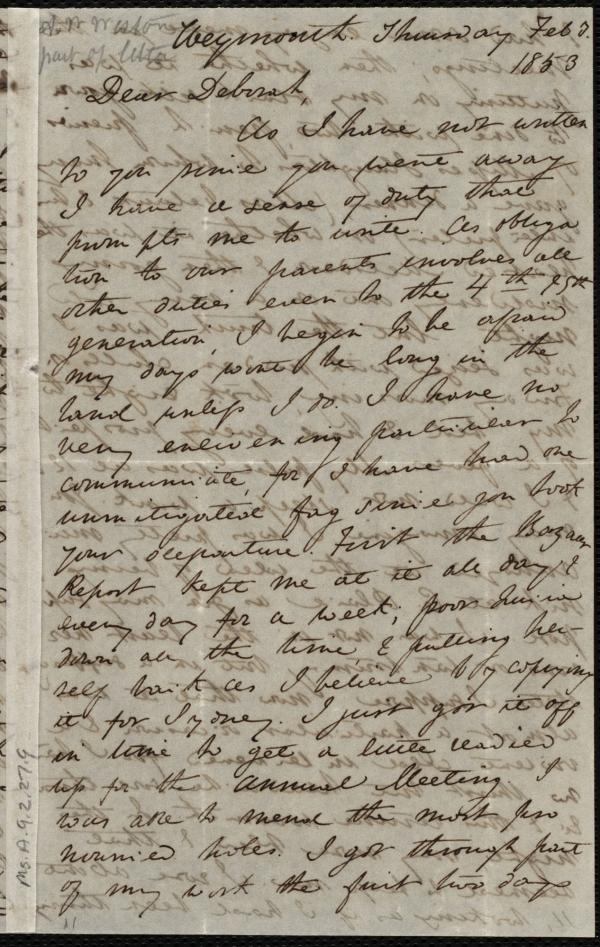 A W Weston
part of letter
Weymouth. Thursday Feb 3.
1853
Dear Deborah,
As I have not written
to you since you went away
I have a sense of duty that
prompts me to write. As obliga
tion to our parents involves all
other duties even to the 4th & 5th
generation, I begin to be afraid
my days wont be long in the
land unless I do. I have no
very enlivening particular to
communicate, for I have had one
unmitigated fag since you took
your departure. First the Bazaar
Report kept me at it all day &
every day for a week; poor
down all the time, & putting her-
self back as I believe by copying
it for Sydney. I just got it off
in time to get a little readied
up for the Annual Meeting. I
was able to mend the most pro
nounced holes. I got through part
of my work the first two days
Ms. A. 9. 2. 27. 9
11